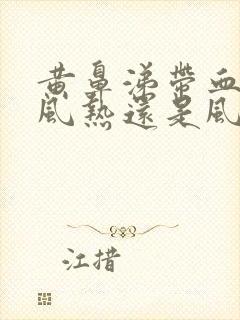 黄鼻涕帶血
風熱還是風
江措